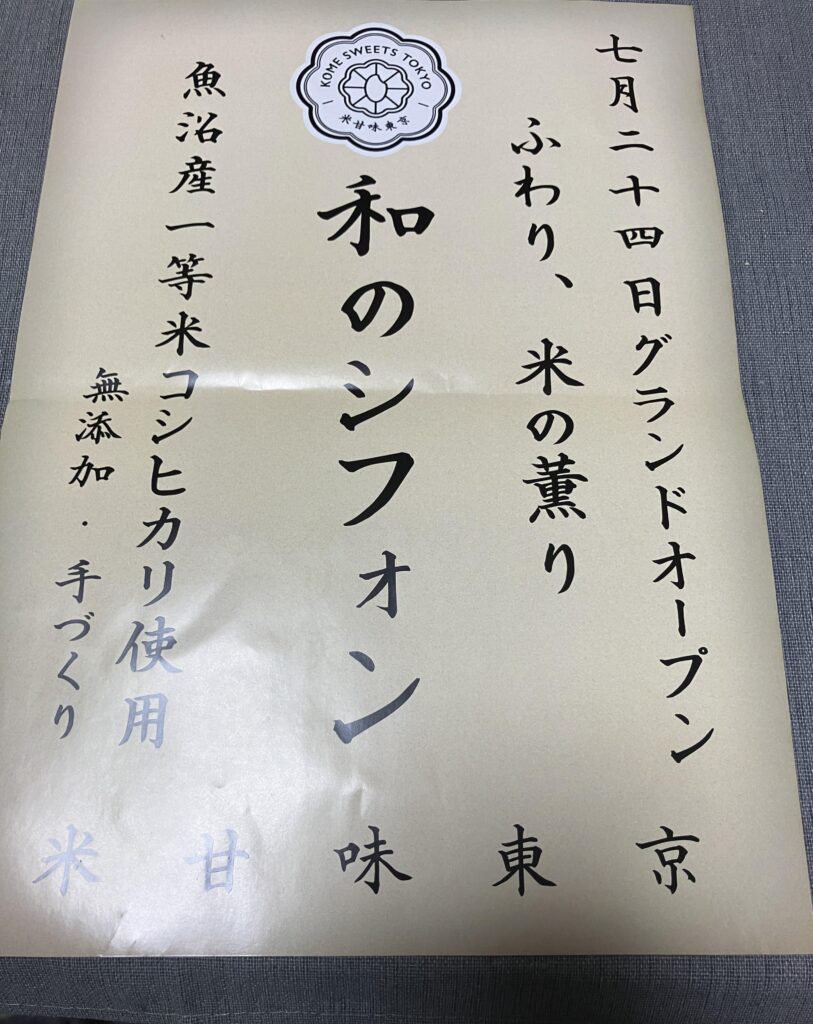 七月二十四日グランドオープン
ふわり、米の薫り
KOME SWEETS TOKYO
米甘味東京
和のシフォン
魚沼産一等米コシヒカリ使用
無添加・手づくり
米甘味東京